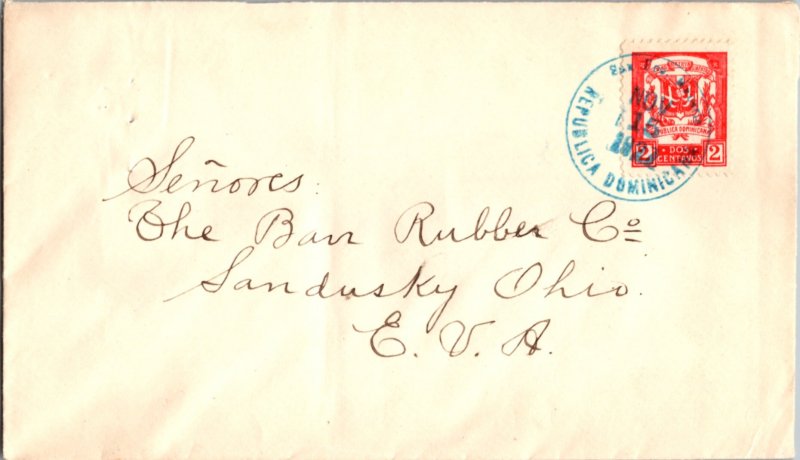 REPUBLICA DOMINICANA
NOV
15
REPUBLICA DOMINICANA
2 DOS CENTAVOS 2
Señores:
The Barr Rubber Co
Sandusky Ohio.
E. U. A.